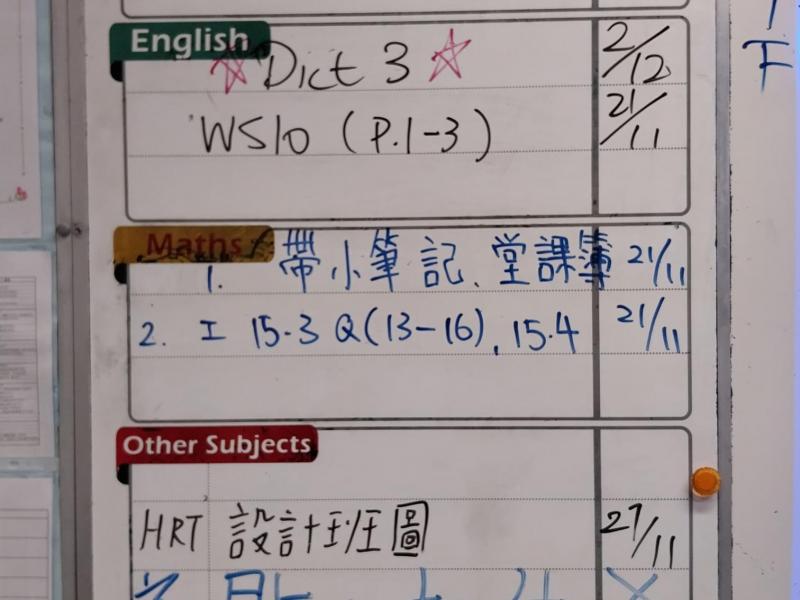 English
Dict 3 2/12
WS10 (P.1-3) 21/11
Maths
1. 帶小筆記、堂課簿 21/11
2. I 15.3 Q(13-16), 15.4 21/11
Other Subjects
HRT 設計班圖 27/11